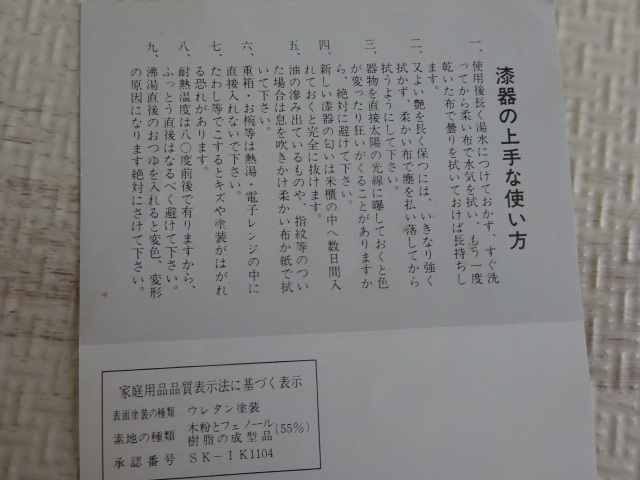 漆器の上手な使い方
一、使用後長く湯水につけておかず、すぐ洗
ってから柔い布で水気を拭い、もう一度
乾いた布で曇りを拭いておけば長持ちし
ます。
二、又よい艶を長く保つには、いきなり強く
拭かず、柔かい布で塵を払い落してから
拭うようにして下さい。
三、器物を直接太陽の光線に曝しておくと色
が変ったり狂いがくることがありますか
ら、絶対に避けて下さい。
四、新しい漆器の匂いは米櫃の中へ数日間入
れておくと完全に抜けます。
五、油の滲み出ているものや、指紋等のつい
た場合は息を吹きかけ柔かい布か紙で拭
いて下さい。
六、重箱・お椀等は熱湯・電子レンジの中に
直接入れないで下さい。
七、たわし等でこするとキズや塗装がはがれ
る恐れがあります。
八、耐熱温度は八〇度前後で有りますから、
ふっとう直後はなるべく避けて下さい。
九、沸湯直後のおつゆを入れると変色、変形
の原因になります絶対にさけて下さい。
家庭用品品質表示法に基づく表示
表面塗装の種類 ウレタン塗装
素地の種類 木粉とフェノール樹脂の成型品(55%)
承認番号 SK-IK1104